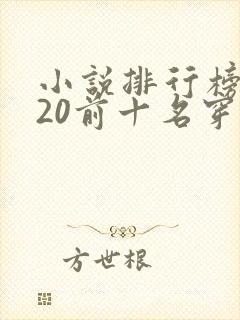 小説排行榜
20前十名穿
方世根